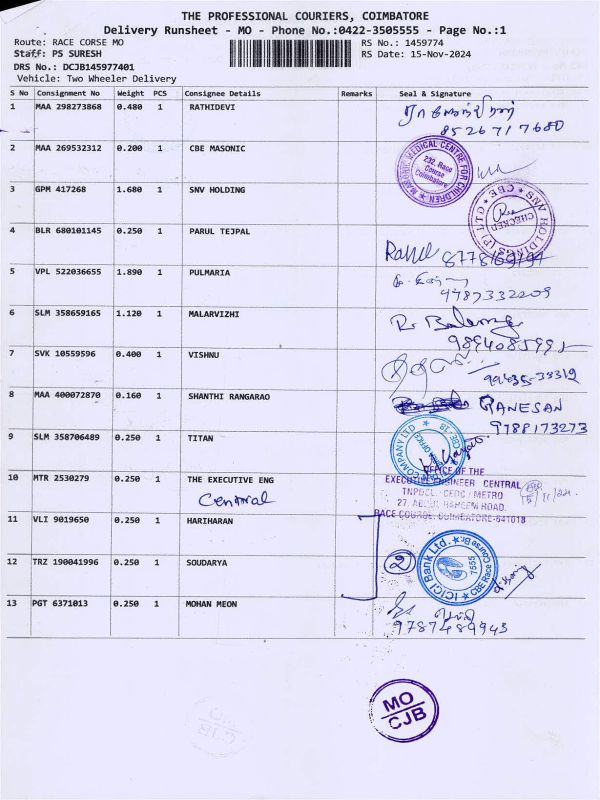 THE PROFESSIONAL COURIERS, COIMBATORE
Delivery Runsheet - MO - Phone No.:0422-3505555 - Page No.:1
Route: RACE CORSE MO RS No.: 1459774
Staff: PS SURESH RS Date: 15-Nov-2024
DRS No.: DCJB145977401
Vehicle: Two Wheeler Delivery
S No Consignment No Weight PCS Consignee Details Remarks Seal & Signature
1 MAA 298273868 0.480 1 RATHIDEVI
8526717680
2 MAA 269532312 0.200 1 CBE MASONIC
MASONIC MEDICAL CENTRE FOR CHILDREN
232, Race
Course
Coimbatore
3 GPM 417268 1.680 1 SNV HOLDING
SNV HOLDINGS (P) LTD CBE
CHECKED
4 BLR 680101145 0.250 1 PARUL TEJPAL
Rahul
5 VPL 522036655 1.890 1 PULMARIA
6 SLM 358659165 1.120 1 MALARVIZHI
9894085991
7 SVK 10559596 0.400 1 VISHNU
8 MAA 400072870 0.160 1 SHANTHI RANGARAO
GANESAN
9788173273
9 SLM 358706489 0.250 1 TITAN
COMPANY LTD
CBE-18
10 MTR 2530279 0.250 1 THE EXECUTIVE ENG
Central
OFFICE OF THE
EXECUTIVE ENGINEER CENTRAL
TNPDCL / CEDC / METRO
RACE COURSE, COIMBATORE-641018
11 VLI 9019650 0.250 1 HARIHARAN
12 TRZ 190041996 0.250 1 SOUDARYA
2
ICICI Bank Ltd.
7555
13 PGT 6371013 0.250 1 MOHAN MEON
9787489943
MO
CJB
MO
CJB